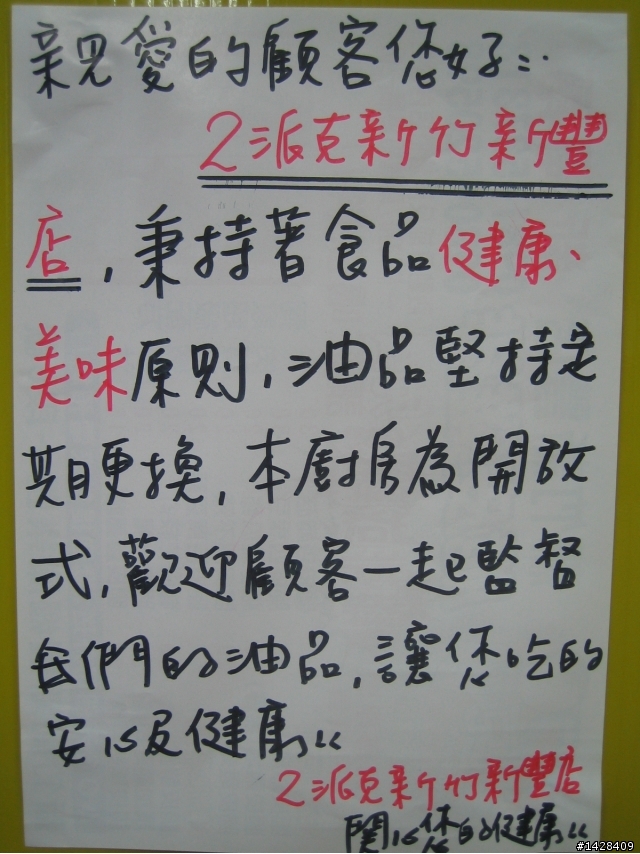 親愛的顧客您好：
2派克新竹新豐
店，秉持著食品健康、
美味原則，油品堅持定
期更換，本廚房為開放
式，歡迎顧客一起監督
我們的油品，讓您吃的
安心及健康。
2派克新竹新豐店
關心您的健康。
#1428409